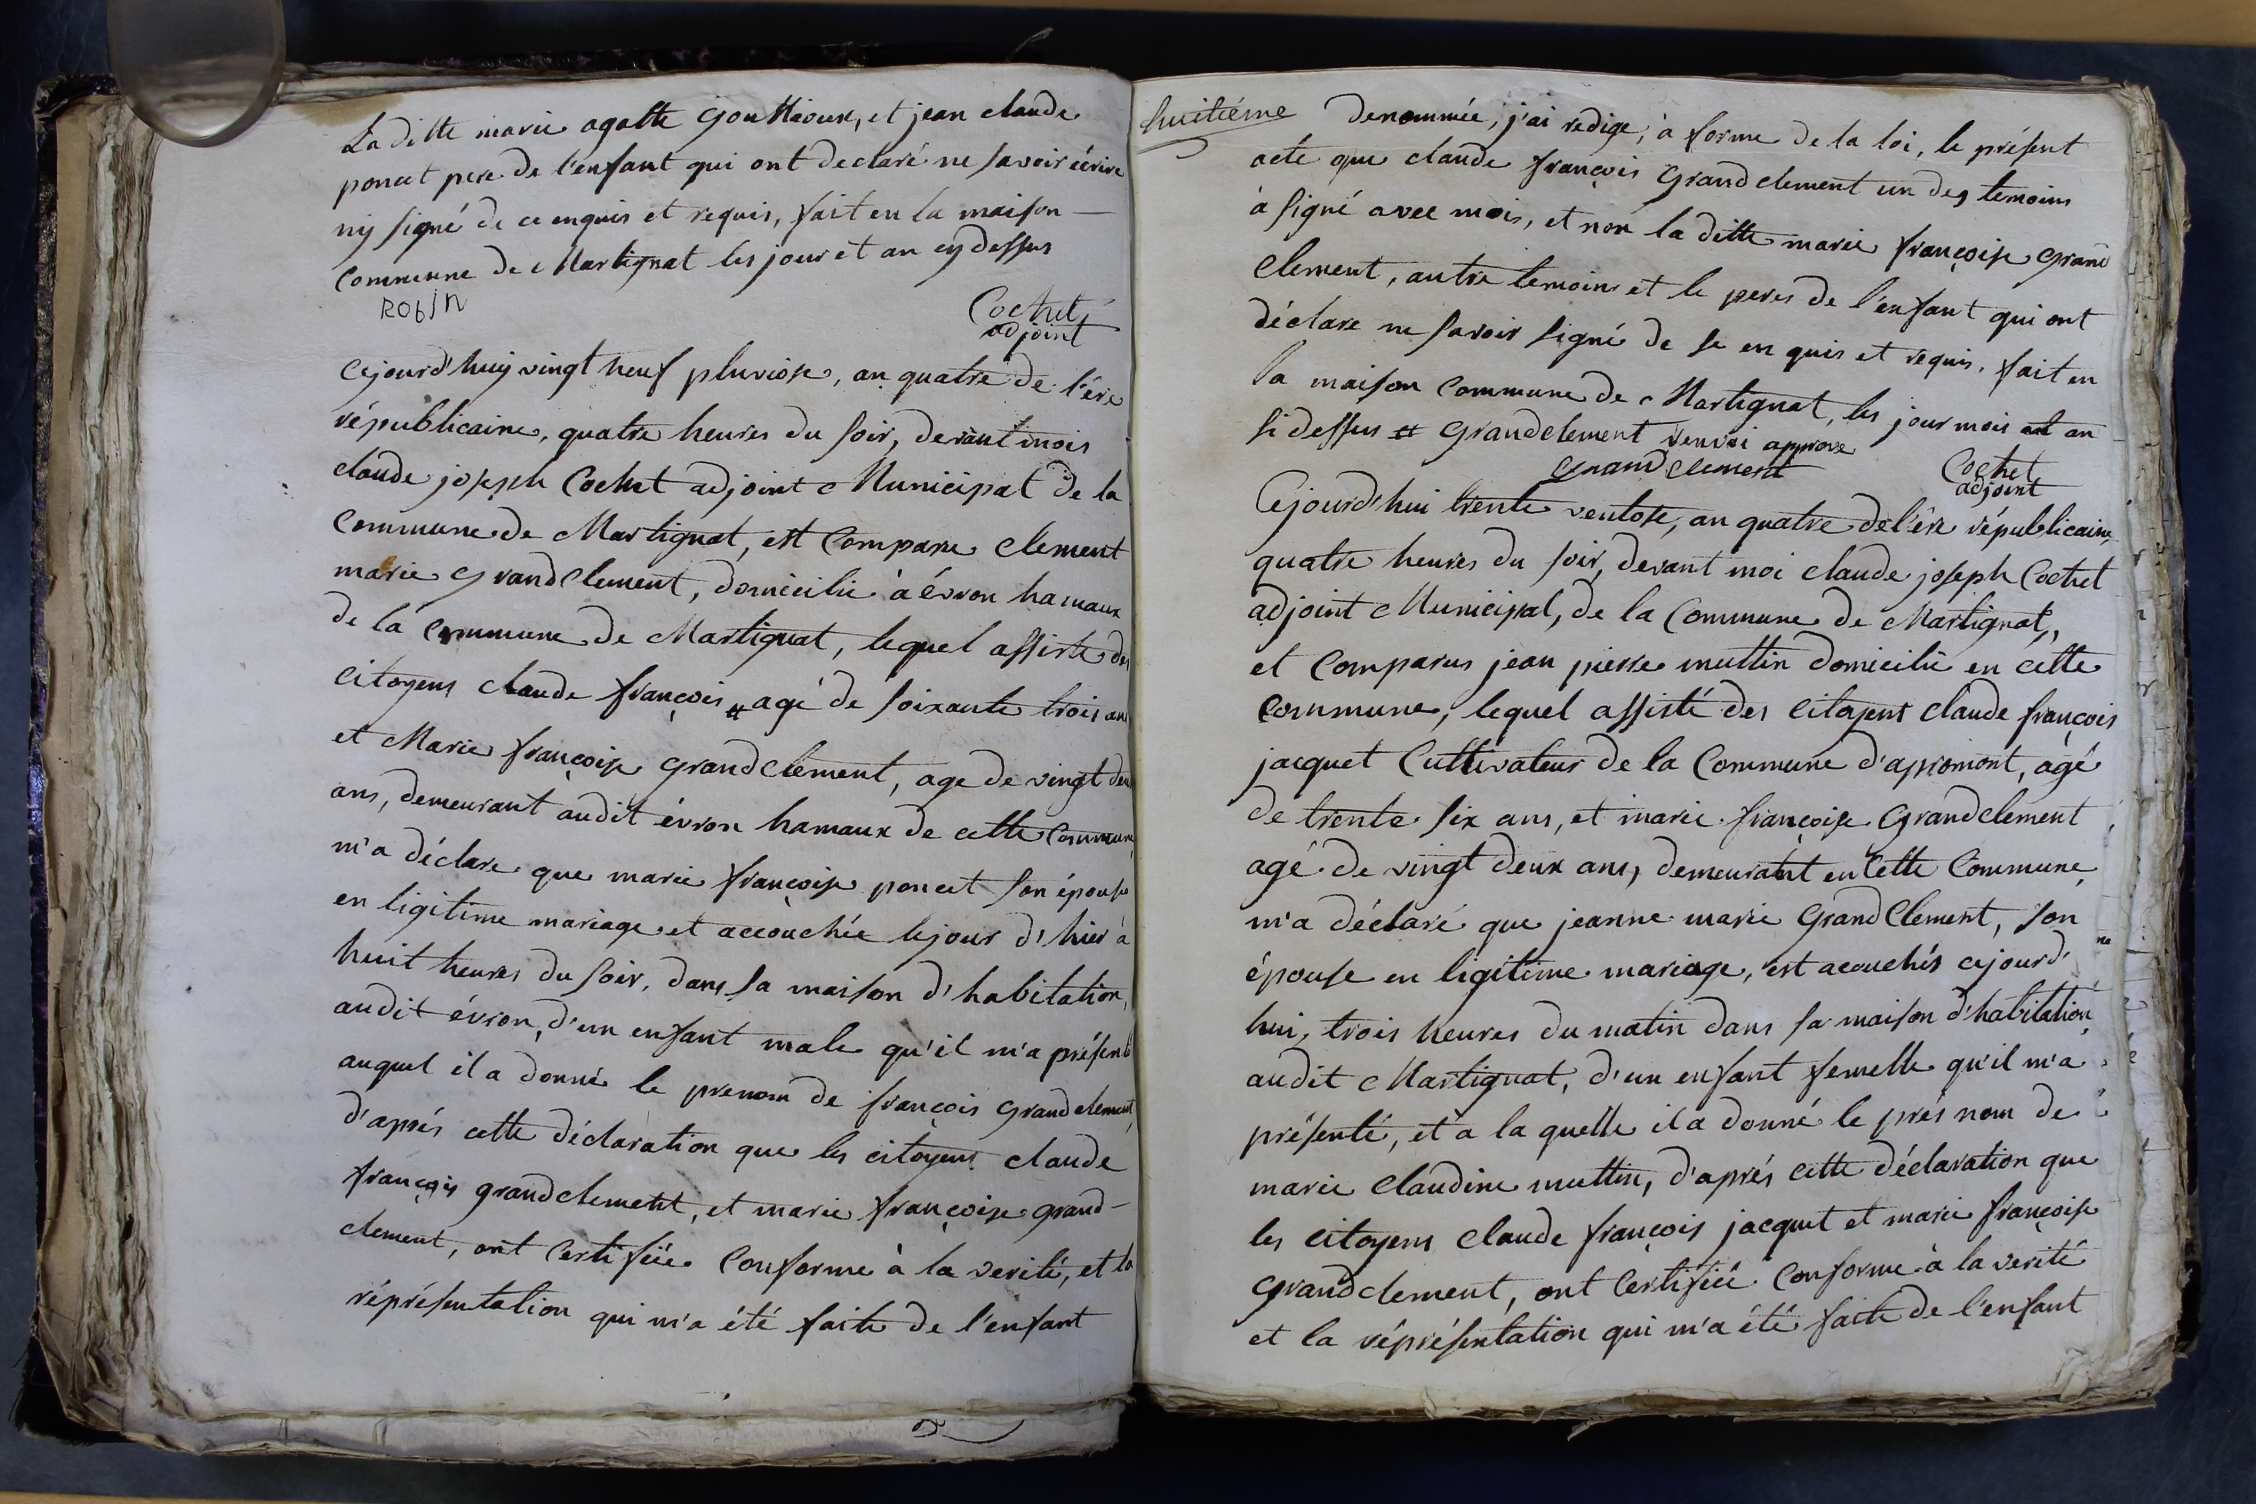 La ditte marie agatte Gouttioux, et jean claude
poncet pere de l'enfant qui ont declaré ne savoir écrire
nij signé de ce enquis et requis, fait en la maison —
commune de Martignat les jour et an cy dessus
ROBIN
Cochet
adjoint
Cejourd'huij vingt neuf pluviose, an quatre de l'ére
républicaine, quatre heures du soir, devant mois
claude joseph Cochet adjoint Municipat de la
Commune de Martignat, est Compare clement
marie grandClement, domicilié à évron hamaux
de la Commune de Martignat, lequel assiste des
Citoyens claude françois # agé de soixante trois ans
et Marie françoise grandclement, age de vingt deux
ans, demeurant audit évron hamaux de cette Commune,
m'a déclare que marie françoise poncet son épouse
en ligitime mariage et accouchée lejour d'hier à
huit heures du soir, dans sa maison d'habitation,
audit évron, d'un enfant male qu'il m'a présenté
auquel il a donné le prenom de françois grandclement,
d'aprés cette déclaration que les citoyens claude
françois grandclement, et marie françoise grand-
clement, ont Certifiée Conforme à la verité, et la
réprésentation qui m'a été faite de l'enfant
huitiéme
denommée, j'ai redige, à forme de la loi, le présent
acte que claude françois Grandclement un des temoins
à signé avec mois, et non la ditte marie françoise grand
Clement, autre temoins et le peres de l'enfant qui ont
déclare ne savoir signé de se en quis et requis, fait en
la maison Commune de Martignat, les jour mois et an
si dessus # Grandclement renvoi approve
Grand clement
Cochet
adjoint
Cejourd'hui trente ventose, an quatre de l'ére républicaine,
quatre heures du soir, devant moi claude joseph Cochet
adjoint Municipal, de la Commune de Martignat,
et Comparus jean pierre muttin domicilié en cette
Commune, lequel assisté des Citoyens claude françois
jacquet Cultivateur de la Commune d'apromont, agé
de trente six ans, et marie françoise Grandclement
agé de vingt deux ans, demeurant en cette Commune,
m'a déclaré que jeanne marie GrandClement, son
épouse en ligitime mariage, est acouchés cejourd'
hui, trois heures du matin dans sa maison d'habitation
audit Martignat, d'un enfant femelle qu'il m'a
présenté, et a la quelle il a donné le prés nom de
marie Claudine muttin, d'aprés cette déclaration que
les citoyens Claude françois jacquet et marie françoise
grandclement, ont Certifiée Conforme à la verité
et la réprésentation qui m'a été faite de l'enfant